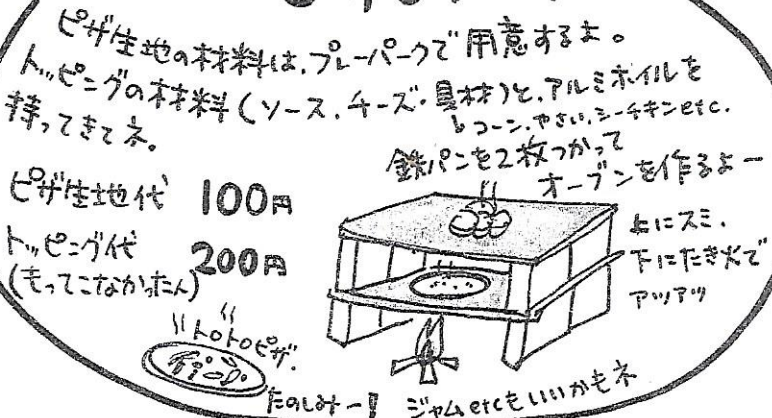 ピザ生地の材料は、プレーパークで用意するよ。
トッピングの材料(ソース、チーズ・具材)と、アルミホイルを
↳コーン、やさい、シーチキンetc.
持ってきてネ。
鉄パンを2枚つかって
オーブンを作るよー
ピザ生地代 100円
トッピング代 200円
(もってこなかったん)
上にスミ、
下にたき火で
アツアツ
トロトロピザ。
たのしみー!
ジャムetcもいいかもネ